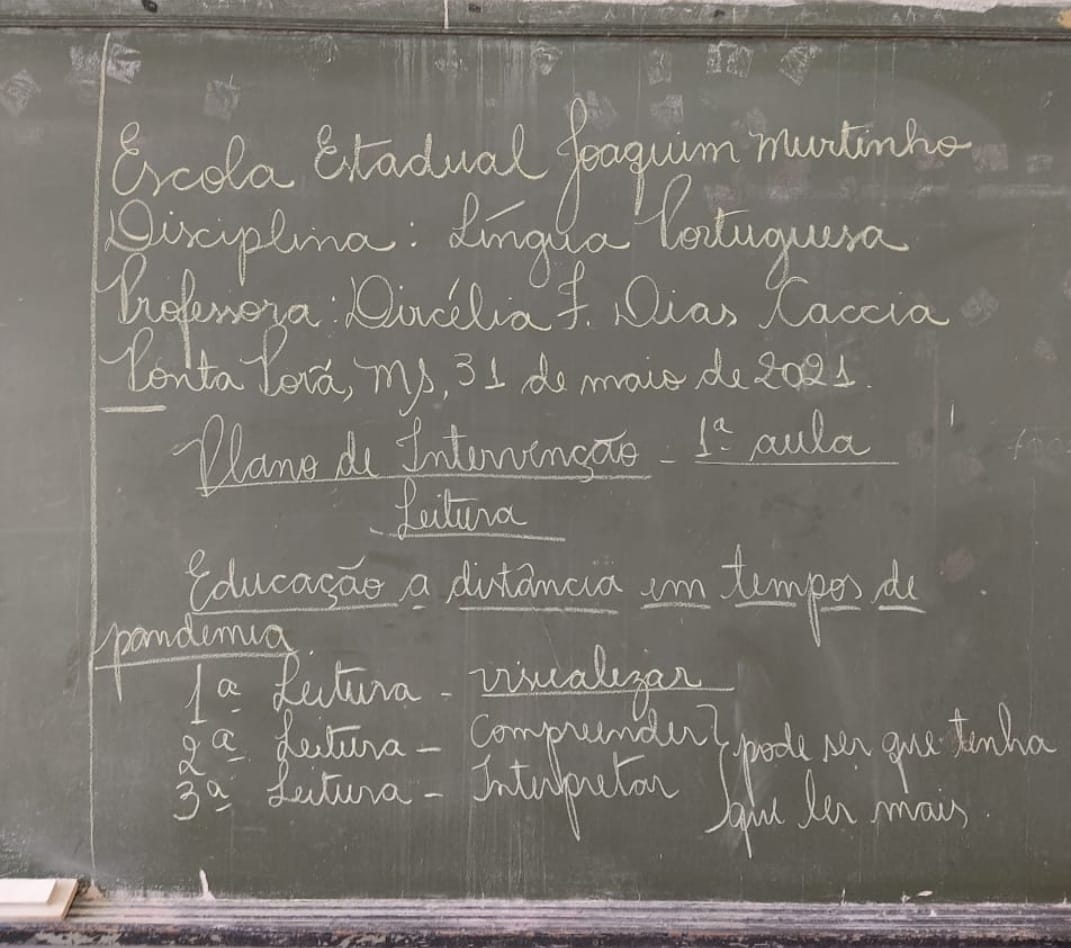 Escola Estadual Joaquim Murtinho
Disciplina: Língua Portuguesa
Professora: Dircélia F. Dias Caccia
Ponta Porã, MS, 31 de maio de 2021.
Plano de Intervenção - 1ª aula
Leitura
Educação a distância em tempos de
pandemia
1ª Leitura - visualizar
2ª Leitura - Compreender } pode ser que tenha
3ª Leitura - Interpretar } que ler mais.